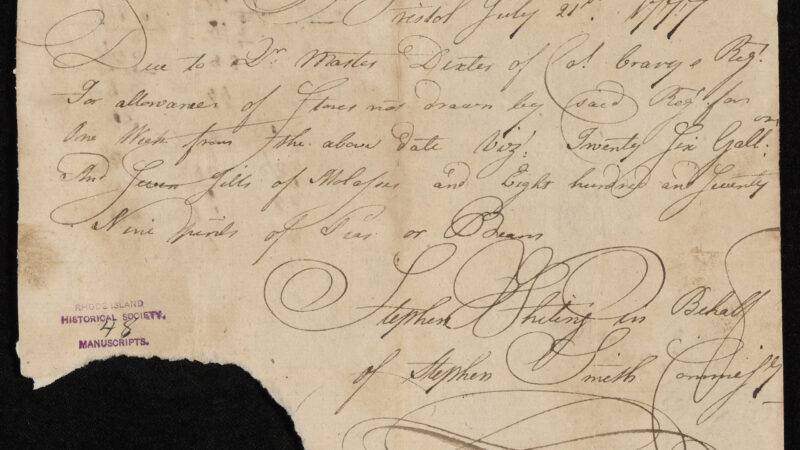 Bristol July 21st. 1777
Due to Qr. Master Dexter of Col. Crary's Regt.
For allowance of Stores not drawn by said Regt. for
One Week from the above date Vizt. Twenty Six Gallons
And Seven Gills of Molasses and Eight hundred and Seventy
Nine Pints of Peas or Beans
Stephen Whiting in Behalf
of Stephen Smith Commissy
RHODE ISLAND
HISTORICAL SOCIETY.
48
MANUSCRIPTS.